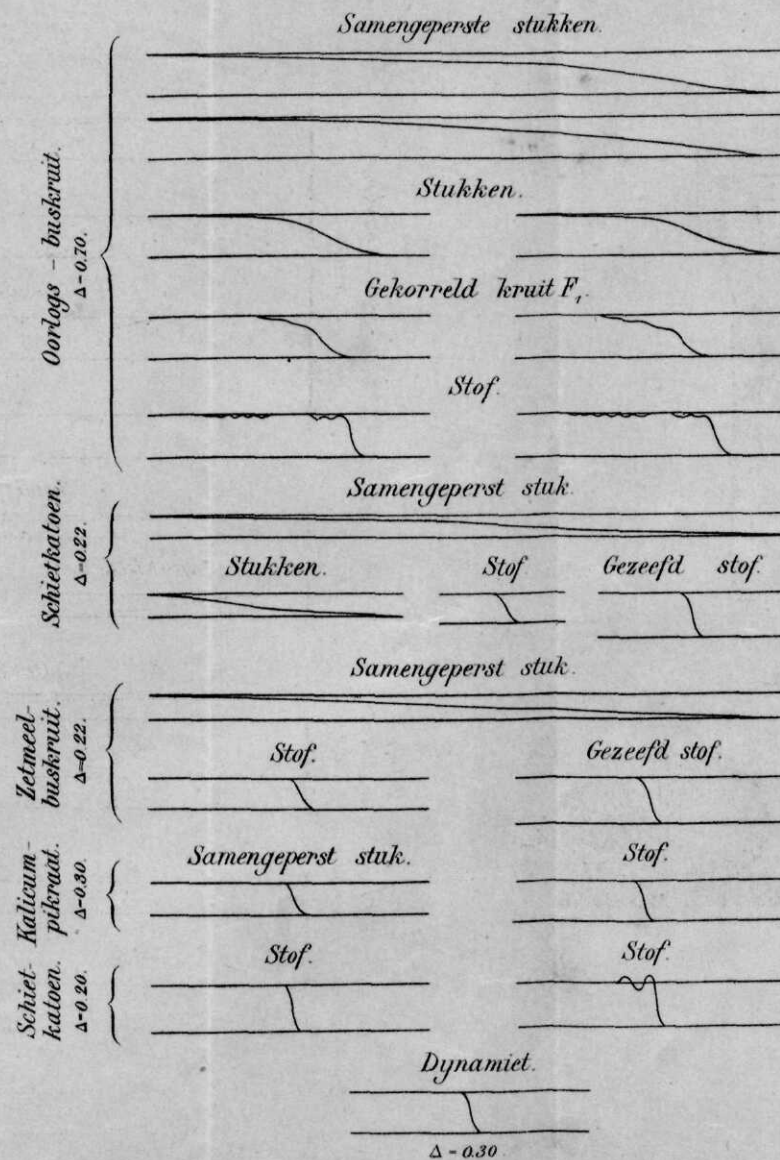 Samengeperste stukken.
Oorlogs - buskruit.
Δ=0.70.
Stukken.
Gekorreld kruit F₁.
Stof.
Schietkatoen.
Δ=0.22.
Samengeperst stuk.
Stukken. Stof Gezeefd stof.
Zetmeel-
buskruit.
Δ=0.22.
Samengeperst stuk.
Stof. Gezeefd stof.
Kalicum-
pikraat.
Δ=0.30.
Samengeperst stuk. Stof.
Schiet-
katoen.
Δ=0.20.
Stof. Stof
Dynamiet.
Δ = 0.30